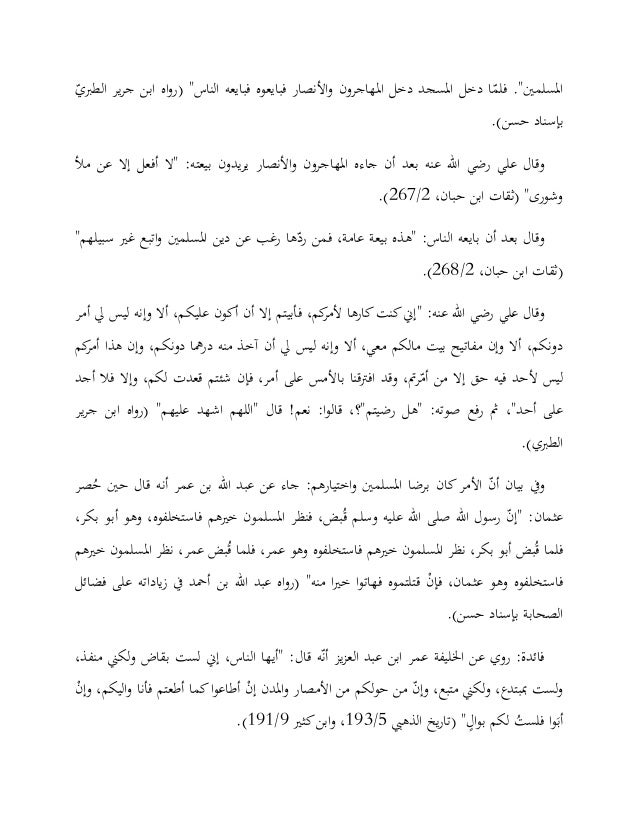 المسلمين". فلمّا دخل المسجد دخل المهاجرون والأنصار فبايعوه فبايعه الناس" (رواه ابن جرير الطبريّ
بإسناد حسن).
وقال علي رضي الله عنه بعد أن جاءه المهاجرون والأنصار يريدون بيعته: "لا أفعل إلا عن ملأ
وشورى" (ثقات ابن حبان، 267/2).
وقال بعد أن بايعه الناس: "هذه بيعة عامة، فمن ردّها رغب عن دين المسلمين واتبع غير سبيلهم"
(ثقات ابن حبان، 268/2).
وقال علي رضي الله عنه: "إني كنت كارها لأمركم، فأبيتم إلا أن أكون عليكم، ألا وإنه ليس لي أمر
دونكم، ألا وإن مفاتيح بيت مالكم معي، ألا وإنه ليس لي أن آخذ منه درهما دونكم، وإن هذا أمركم
ليس لأحد فيه حق إلا من أمّرتم، وقد افترقنا بالأمس على أمر، فإن شئتم قعدت لكم، وإلا فلا أجد
على أحد"، ثم رفع صوته: "هل رضيتم"؟، قالوا: نعم! قال "اللهم اشهد عليهم" (رواه ابن جرير
الطبري).
وفي بيان أنّ الأمر كان برضا المسلمين واختيارهم: جاء عن عبد الله بن عمر أنه قال حين حُصر
عثمان: "إنّ رسول الله صلى الله عليه وسلم قُبض، فنظر المسلمون خيرهم فاستخلفوه، وهو أبو بكر،
فلما قُبض أبو بكر، نظر المسلمون خيرهم فاستخلفوه وهو عمر، فلما قُبض عمر، نظر المسلمون خيرهم
فاستخلفوه وهو عثمان، فإنْ قتلتموه فهاتوا خيرا منه" (رواه عبد الله بن أحمد في زياداته على فضائل
الصحابة بإسناد حسن).
فائدة: روي عن الخليفة عمر ابن عبد العزيز أنّه قال: "أيها الناس، إني لست بقاض ولكني منفذ،
ولست بمبتدع، ولكني متبع، وإنّ من حولكم من الأمصار والمدن إنْ أطاعوا كما أطعتم فأنا واليكم، وإنْ
أبَوا فلستُ لكم بوالٍ" (تاريخ الذهبي 193/5، وابن كثير 191/9).